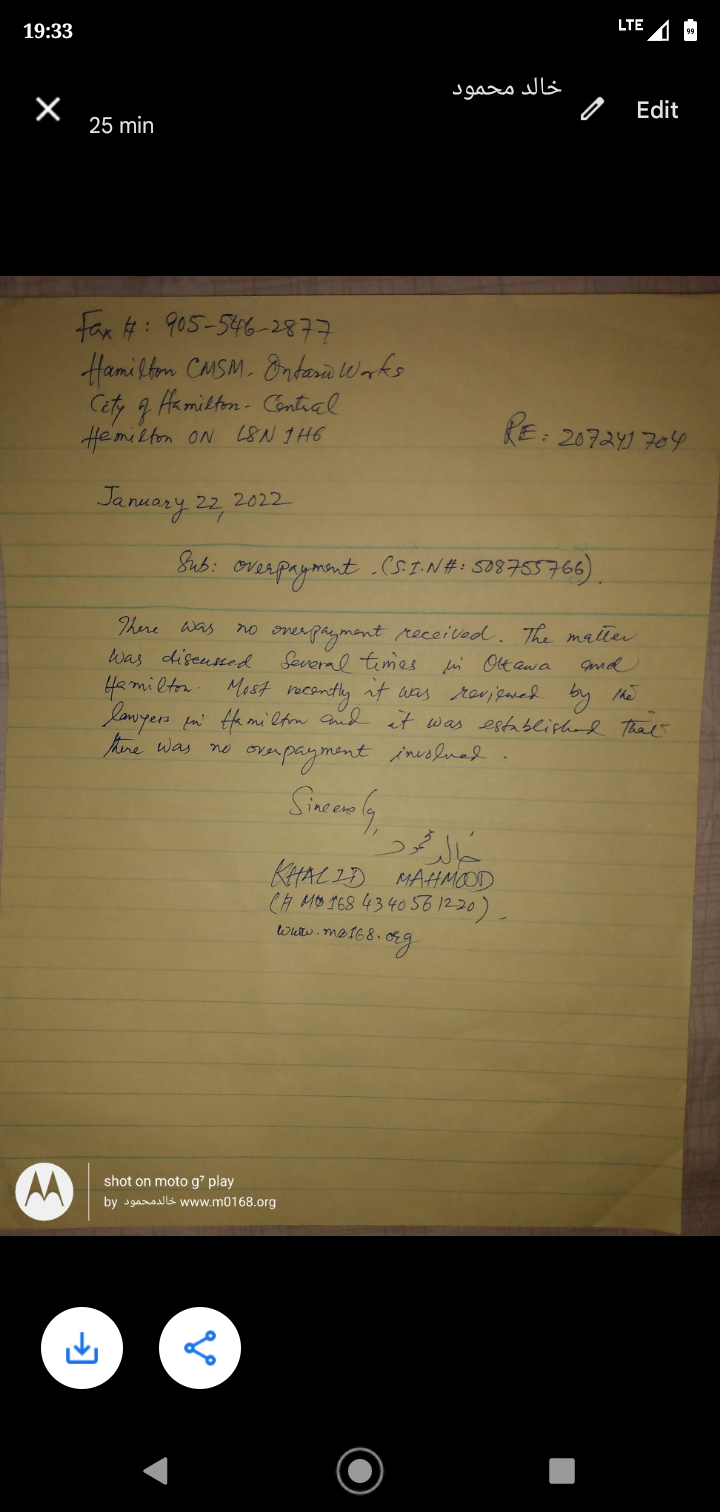 19:33
LTE
99
خالد محمود
25 min
Edit
Fax #: 905-546-2877
Hamilton CMSM. Ontario Works
City of Hamilton - Central
Hamilton ON L8N 1H6
RE: 207241704
January 22, 2022
Sub: overpayment. (S.I.N#: 508755766).
There was no overpayment received. The matter
was discussed several times in Ottawa and
Hamilton. Most recently it was reviewed by the
lawyers in Hamilton and it was established that
there was no overpayment involved.
Sincerely,
خالد محمود
KHALID MAHMOOD
(# M0168 43405 61220).
www.m0168.org
shot on moto g⁷ play
by خالدمحمود www.m0168.org